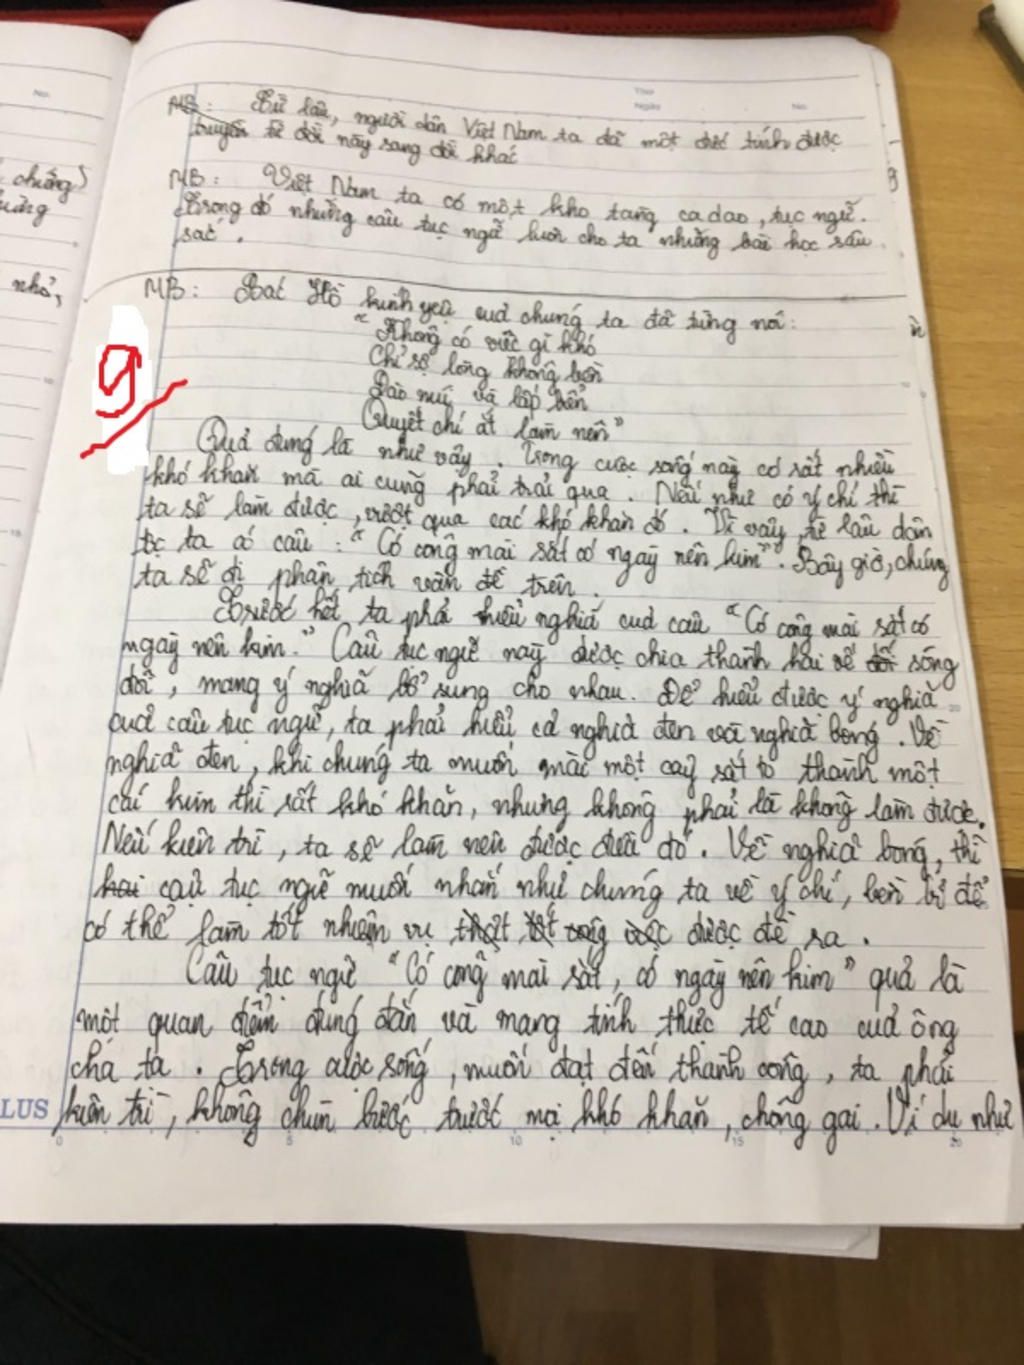 Thứ
Ngày
No.
No.
MB: Từ lâu, người dân Việt Nam ta đã một đức tính được
truyền từ đời này sang đời khác
chứng)
MB: Việt Nam ta có một kho tàng ca dao, tục ngữ.
Trong đó những câu tục ngữ luôn cho ta những bài học sâu
sắc.
nhỏ,
MB: Bác Hồ kính yêu của chúng ta đã từng nói:
"Không có việc gì khó
Chỉ sợ lòng không bền
Đào núi và lấp biển
Quyết chí ắt làm nên"
9
Quả đúng là như vậy. Trong cuộc sống này có rất nhiều
khó khăn mà ai cũng phải trải qua. Nếu như có ý chí thì
ta sẽ làm được, vượt qua các khó khăn đó. Vì vậy, từ lâu dân
tộc ta có câu: "Có công mài sắt có ngày nên kim". Bây giờ, chúng
ta sẽ đi phân tích vấn đề trên.
Trước hết ta phải hiểu nghĩa của câu "Có công mài sắt có
ngày nên kim." Câu tục ngữ này được chia thành hai vế đối sóng
đôi, mang ý nghĩa bổ sung cho nhau. Để hiểu được ý nghĩa
của câu tục ngữ, ta phải hiểu cả nghĩa đen và nghĩa bóng. Về
nghĩa đen, khi chúng ta muốn mài một cây sắt to thành một
cái kim thì rất khó khăn, nhưng không phải là không làm được.
Nếu kiên trì, ta sẽ làm nên được điều đó. Về nghĩa bóng, thì
hai câu tục ngữ muốn nhắn nhủ chúng ta về ý chí, bền bỉ để
có thể làm tốt nhiệm vụ được đề ra.
Câu tục ngữ "Có công mài sắt, có ngày nên kim" quả là
một quan điểm đúng đắn và mang tính thực tế cao của ông
cha ta. Trong cuộc sống, muốn đạt đến thành công, ta phải
kiên trì, không chùn bước trước mọi khó khăn, chông gai. Ví dụ như
LUS
0 5 10 15 20